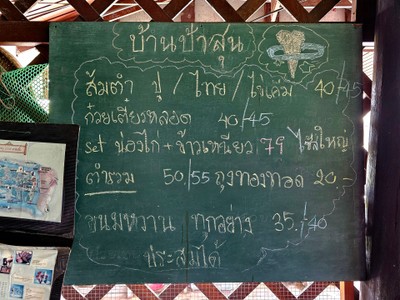 บ้านป้าสุน
ส้มตำ ปู / ไทย / ไข่เค็ม 40/45
ก๋วยเตี๋ยวหลอด 40/45
Set น่องไก่ + ข้าวเหนียว 79 ไซส์ใหญ่
ตำรวม 50/55 ถุงทองทอด 20.-
ขนมหวาน ทุกอย่าง 35./40
ประสมได้